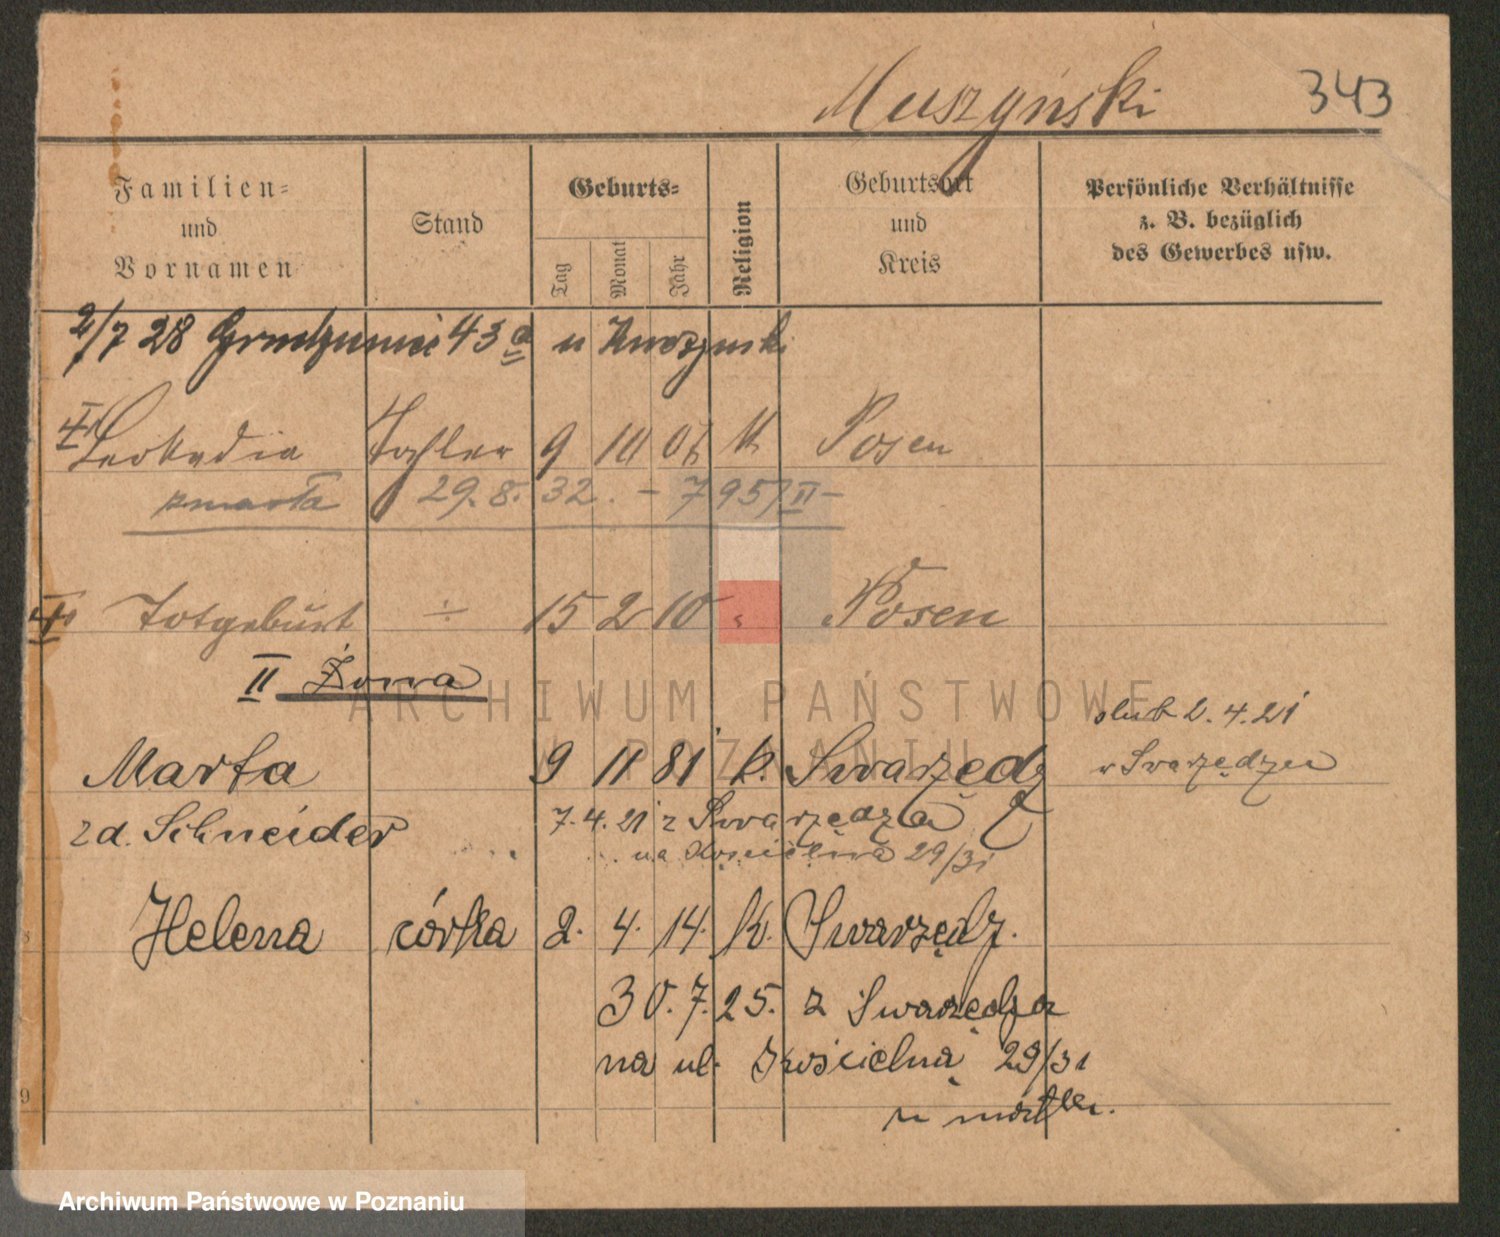 Muszyński 343
Familien= und Vornamen
Stand
Geburts=
Tag Monat Jahr
Religion
Geburtsort und Kreis
Persönliche Verhältnisse z. B. bezüglich des Gewerbes usw.
2/7 28 43 a u
I Leokadia Tochter 9 10 07 k Posen
zmarła 29.8.32. – 7957 II –
Totgeburt ÷ 15 2 10 Posen
II Żona
ślub 2.4.21
Marta 9 11 81 k. Swarzędz w Swarzędzu
zd. Schneider 7.4.21 z Swarzędza
na Kościelna 29/31
Helena córka 2. 4. 14. k. Swarzędz.
30.7.25. z Swarzędza
na ul. Kościelną 29/31
u matki.
9
ARCHIWUM PAŃSTWOWE
W POZNANIU
Archiwum Państwowe w Poznaniu